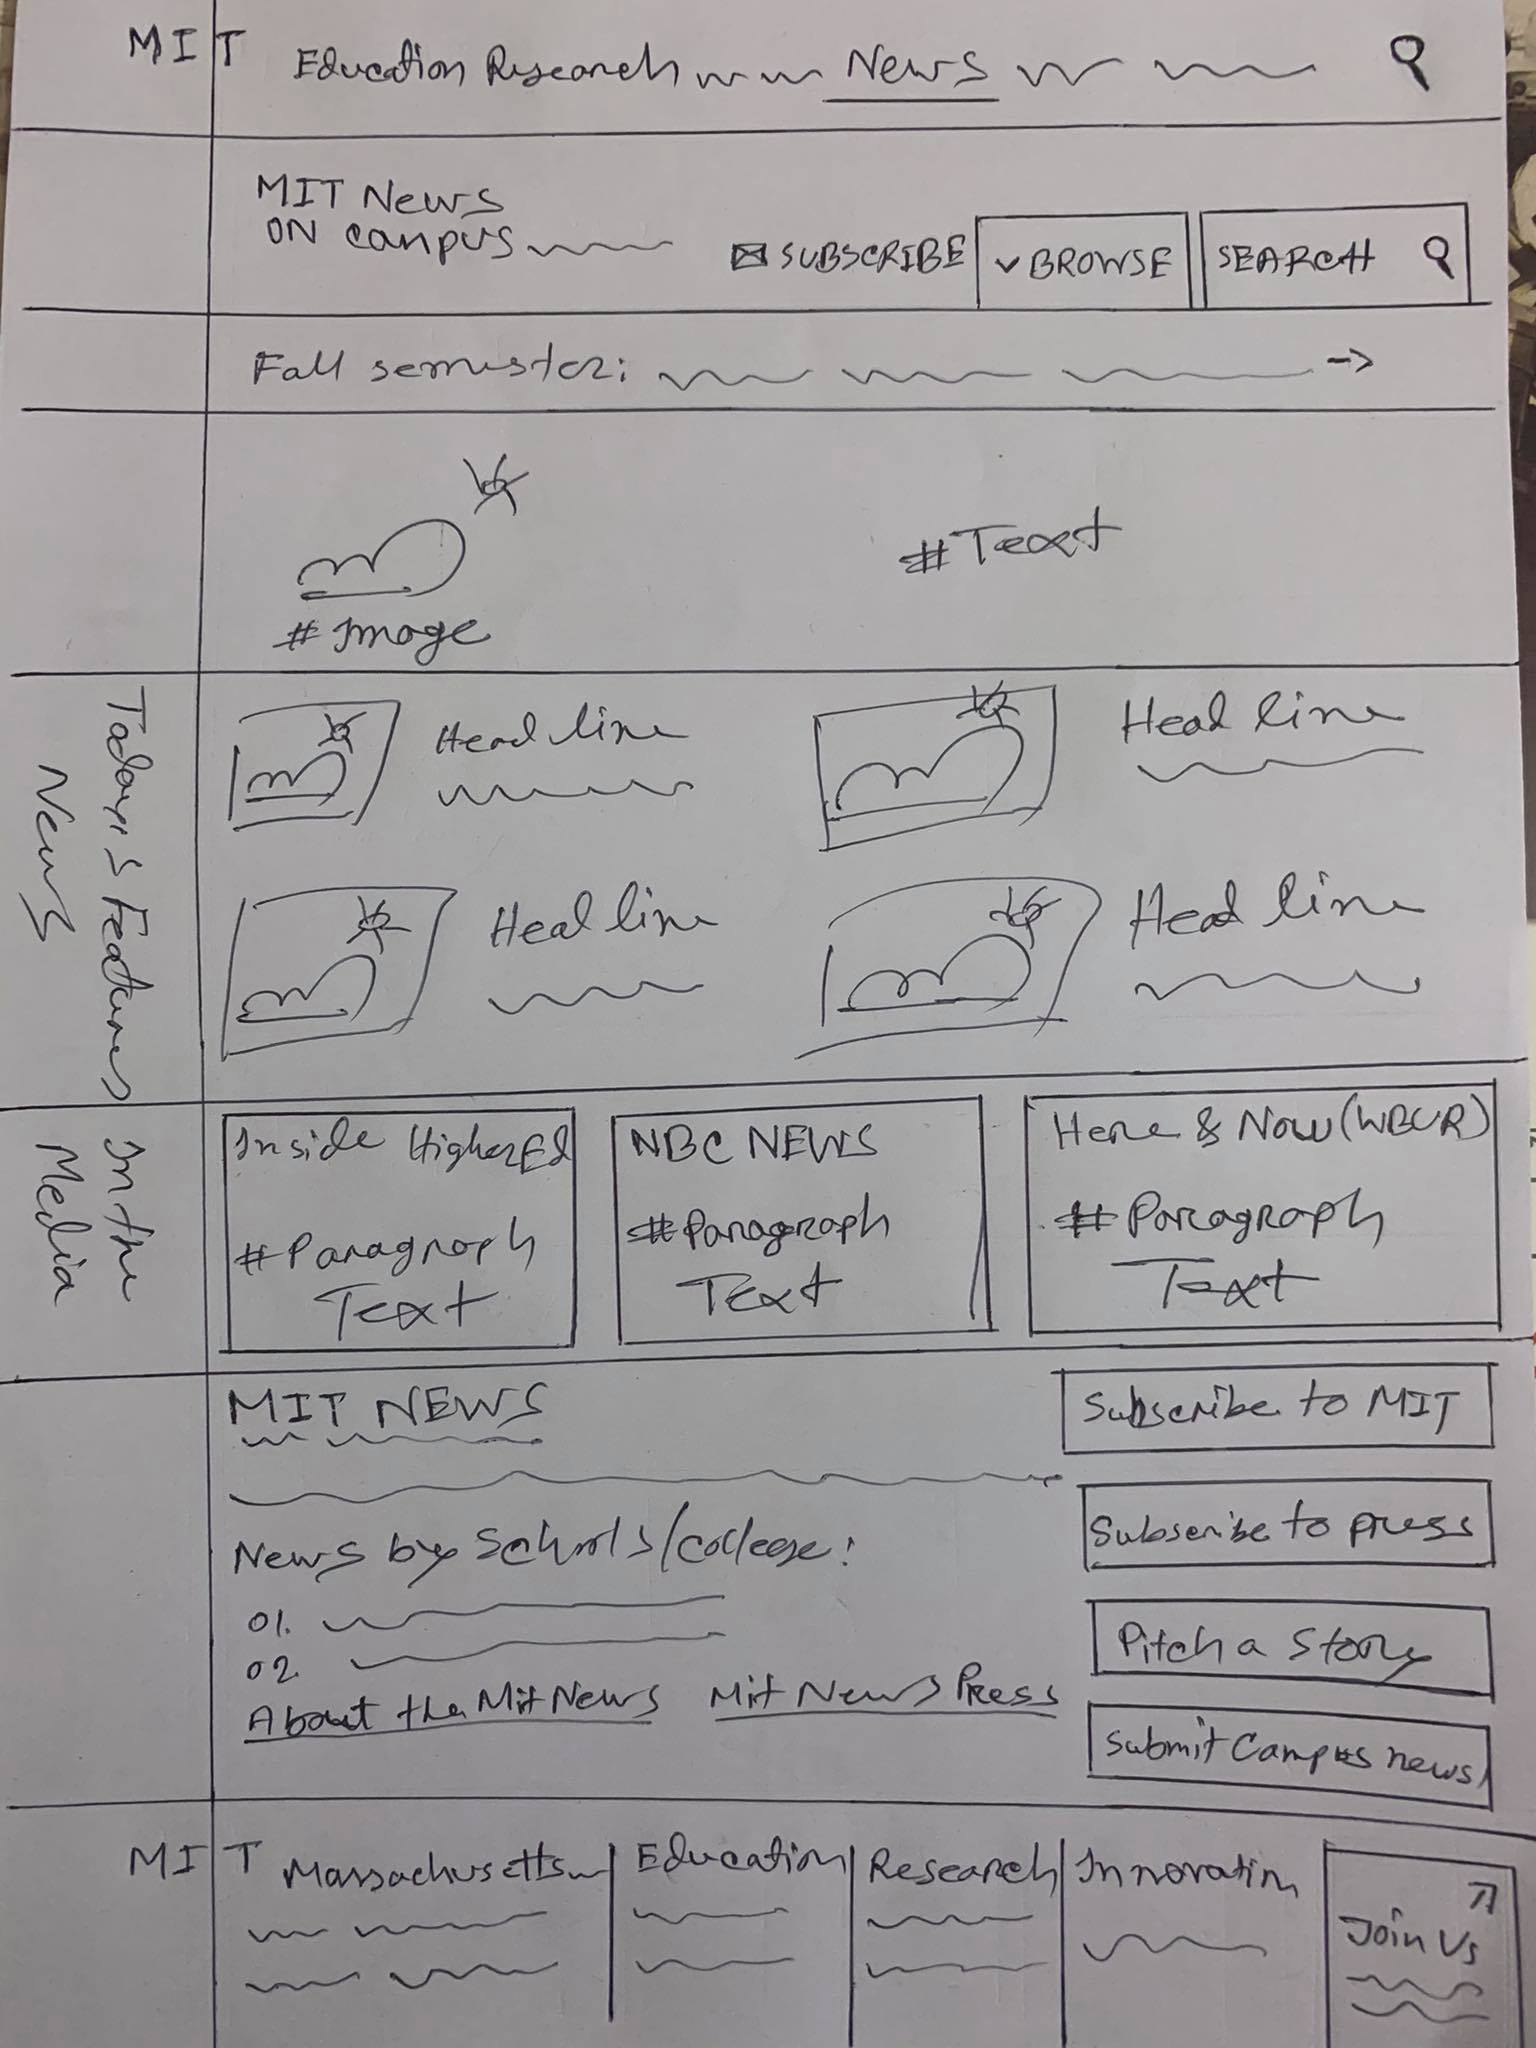 MIT Education Research News
MIT News
ON campus
SUBSCRIBE
BROWSE
SEARCH
Fall semester:
#Image
#Text
Today's Features
News
Head line
Head line
Head line
Head line
In the
Media
Inside HigherEd
#Paragraph
Text
NBC NEWS
#Paragraph
Text
Here & Now (WBUR)
#Paragraph
Text
MIT NEWS
News by Schools/college:
01.
02.
About the Mit News
Mit News Press
Subscribe to MIT
Subscribe to press
Pitch a Story
Submit Campus news
MIT
Massachusetts
Education
Research
Innovation
Join Us